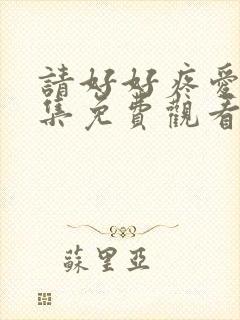 請好好疼愛
集免費觀看
蘇里亞